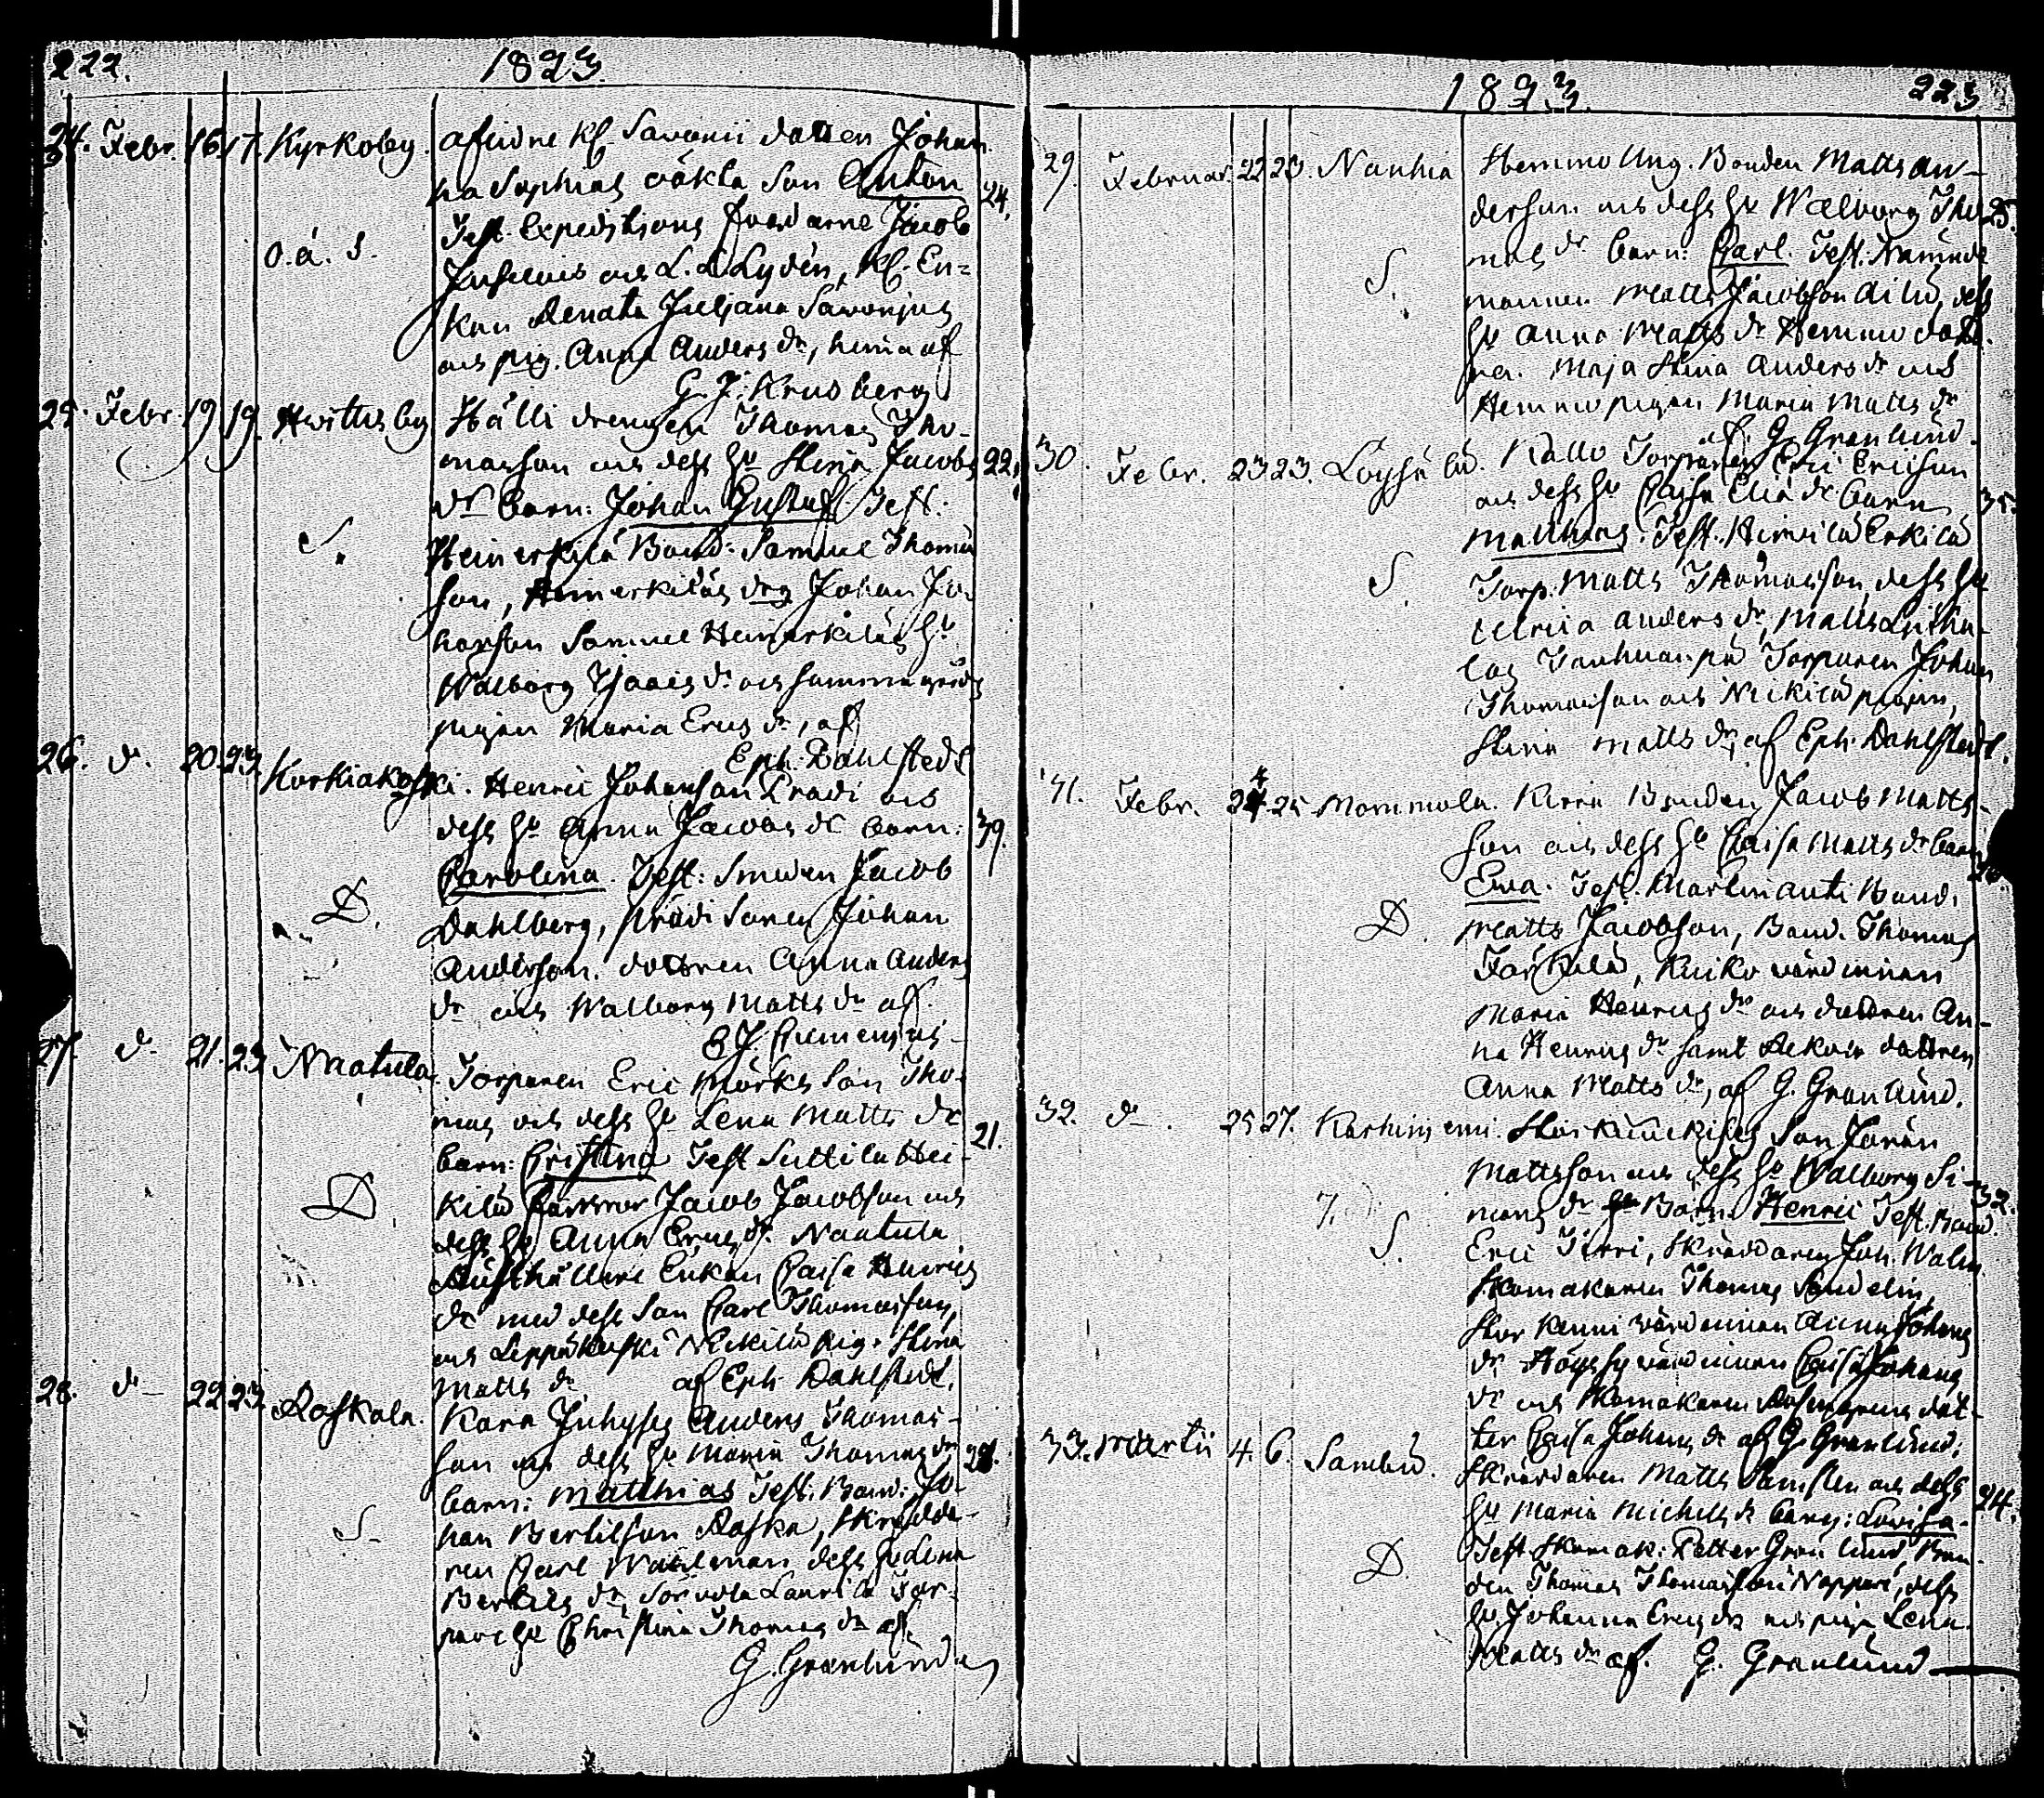 222.
1823.
24. Febr. 16. 17. Kyrkoby. afledne Kl. Savonii datten Johan
na Sophias oäkta son Anton 24.
Test. Expeditions
o.ä. S. L. Lydén, Kl. En=
kan Renata Juljana Savonius
och pig. Anna Anders dr,
G. J. Krusberg
25. Febr. 19. 19. Hvittis by Hälli drengen Thomas Tho-
masson och dess hu Stina Jacobs 22.
dr barn: Johan Gustaf Test.
S. Heinerkilä Bond: Samuel Thomas
son, Heinerkiläs drg Johan Jo-
hansson Samuel Heinerkiläs hu
Walborg Isaacs dr och samma
pigan Maria Erics dr, af
Eph. Dahlstedt
26. d. 20. 23. Korkiakoski. Henric Johansson Prådi och
dess hu Anna Jacobs dr barn: 39.
Carolina. Test: Smeden Jacob
D. Dahlberg, Prådi sonen Johan
Andersson. dottren Anna Anders
dr och Walborg Matts dr af
27. d. 21. 23. Naatula. Torparen Eric Mörks son Tho-
mas och dess hu Lena Matts dr 21.
barn: Cristina Test Suttila Hei-
D. kilä Jacob Jacobson och
dess hu Anna Erics dr. Naatula
Rusthållare Enkan Caisa Henrics
dr med dess son Carl Thomasson,
och Leppäkoski Nickilä pig. Stina
Matts dr af Eph Dahlstedt.
28. d. 22. 23. Raskala. Kara Anders Thomas-
son och dess hu Maria Thomas dr 28.
barn: Matthias Test. Bond: Jo-
S. han Bertilson Raska, Skrädda-
ren Carl Wahlman dess hu Lena
Bertils dr, Laurila Tor-
pare hu Christina Thomas dr af
G. Granlund
1823.
223
29. Februar. 22 23. Nanhia Hemmo Ung. Bonden Matts An-
dersson och dess hu Walborg Tho 25.
mas dr barn: Carl. Test. Nämnde
S. mannen Matts Jacobson dess
hu Anna Matts dr Hemmo dott
ra. Maja Stina Anders dr och
Hemmo pigan Maria Matts dr
af. G. Granlund.
30. Febr. 23 23. Loysu Kallo Torparen Eric Ericson
och dess hu Caisa Elia dr barn 35.
Matthias. Test. Erkilä
S. Torp. Matts Thomasson, dess hu
Ulrica Anders dr, Matts
Torparen Johan
Thomasson och Nickilä pigan,
Stina Matts dr, af Eph. Dahlstedt.
31. Febr. 24 25 Mommola. Kirra Bonden Jacob Matts-
son och dess hu Caisa Matts dr barn
Ewa. Test. Martin Anti Bond.
D. Matts Jacobson, Bond. Thomas
Kuiko värdinnan
Maria Henrics dr och dottren An-
na Henrics dr samt Rekoin dottren
Anna Matts dr, af G. Granlund.
32. d. 25 27. Karhiniemi. son Jören
Mattsson och dess hu Walborg Si- 32.
mons dr Barn Henric Test. Bond.
S. Eric Skräddaren Joh. Walin
Skomakaren Thomas Sandelin,
Stor värdinnan Anna Johans
dr värdinnan Caisa Johans
dr och Skomakaren dot-
ter Caisa Johans dr af G. Granlund.
33. Martii 4. 6. Sambu. Skräddaren Matts och dess
hu Maria Michels dr barn: Lovisa. 24.
D. Test. Skomak: Petter Granlund, Bon-
den Thomas Thomasson Nappari, dess
hu Johanna Erics dr och pigan Lena
Matts dr af. G. Granlund